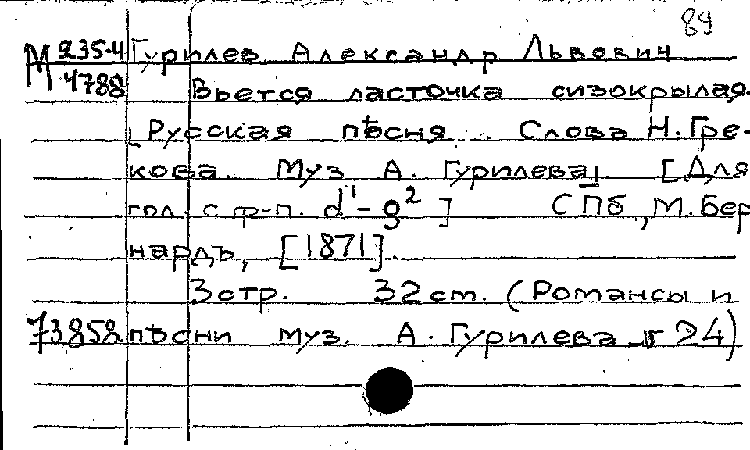 89
М 235-4 Гурилев Александр Львович
4788 Вьется ласточка сизокрылая.
Русская пѣсня. Слова Н. Гре-
кова. Муз А. Гурилева [Для
гол. с ф-п. d¹-g²] СПб, М. Бер
нардъ, [1871].
3 стр. 32 см. (Романсы и
73858 пѣсни муз. А. Гурилева № 24)